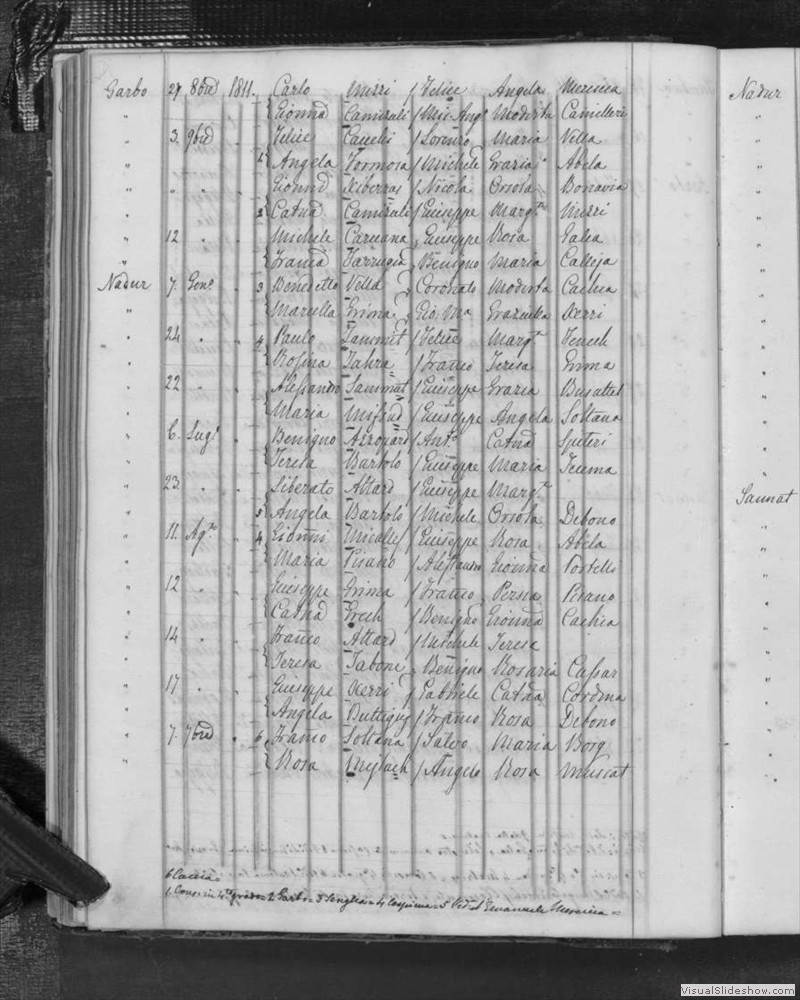 Garbo 27 8bre 1811. Carlo Mizzi / Felice Angela Mercieca Nadur
" Gionna Camiruli / Mic: Ang: Modesta Camilleri "
" 3. 9bre " Felice Cauchi / Lorenzo Maria Vella "
" 1 Angela Formosa / Michele Grazia Abela "
" " " " Gionna Xiberras / Nicola Orsola Bonavia "
" 2 Catna Camiruli / Giuseppe Margta Mizzi "
" 12 " " Michele Caruana / Giuseppe Rosa Galea "
" Franca Farrugia / Benigno Maria Calleja "
Nadur 7. Geno " 3 Benedetto Vella / Coronato Modesta Cachia "
" Marcella Grima / Gio: Ma Grazulla Xerri "
" 24 " " 4 Paulo Zammit / Felice Margta Tench "
" Rosina Zahra / Franco Teresa Grima "
" 22 " " Alessandro Zammit / Giuseppe Grazia Busuttil "
" Maria Mifsud / Giuseppe Angela Soltana "
" 6. Lugo " Benigno Azzopard / Anto Catna Spiteri "
" Teresa Bartolo / Giuseppe Maria Teuma "
" 23 " " Liberato Attard / Giuseppe Margta Sannat
" 5 Angela Bartolo / Michele Orsola Debono "
" 11. Ago " 4 Gionni Micallef / Giuseppe Rosa Abela "
" Maria Pisano / Alessandro Gionna Portelli "
" 12 " " Giuseppe Grima / Franco Persa Pisano "
" Catna Grech / Benigno Gionna Cachia "
" 14 " " Franco Attard / Michele Teresa "
" Teresa Tabone / Benigno Rosaria Cassar "
" 17 " " Giuseppe Xerri / Gabriele Catna Cordina "
" Angela Buttigieg / Franco Rosa Debono "
" 7. 7bre " 6 Franco Soltana / Salvo Maria Borg "
" Rosa Meylach / Angelo Rosa Muscat "
6 Caccia =
1. Cons: in 4to grado = 2 Garbo = 3 Senglea = 4 Cospicua = 5 Ved: d' Emanuele Mercieca =
VisualSlideshow.com